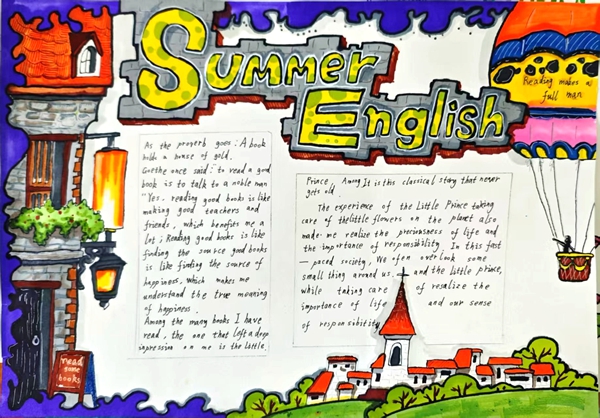 Summer
English
Reading makes a
full man
As the proverb goes: A book
holds a house of gold.
Goethe once said: to read a good
book is to talk to a noble man
"Yes. reading good books is like
making good teachers and
friends, which benefits me a
lot; Reading good books is like
finding the source good books
is like finding the source of
happiness, which makes me
understand the true meaning
of happiness.
Among the many books I have
read, the one that left a deep
impression on me is the Little
Prince, Among It is this classical story that never
gets old.
The experience of the Little Prince taking
care of the little flowers on the planet also
made me realize the preciousness of life and
the importance of responsibility. In this fast
— paced society, We often overlook some
small thing around us. and the little prince,
while taking care of resalize the
importance of life and our sense
of responsibility
read
some
books